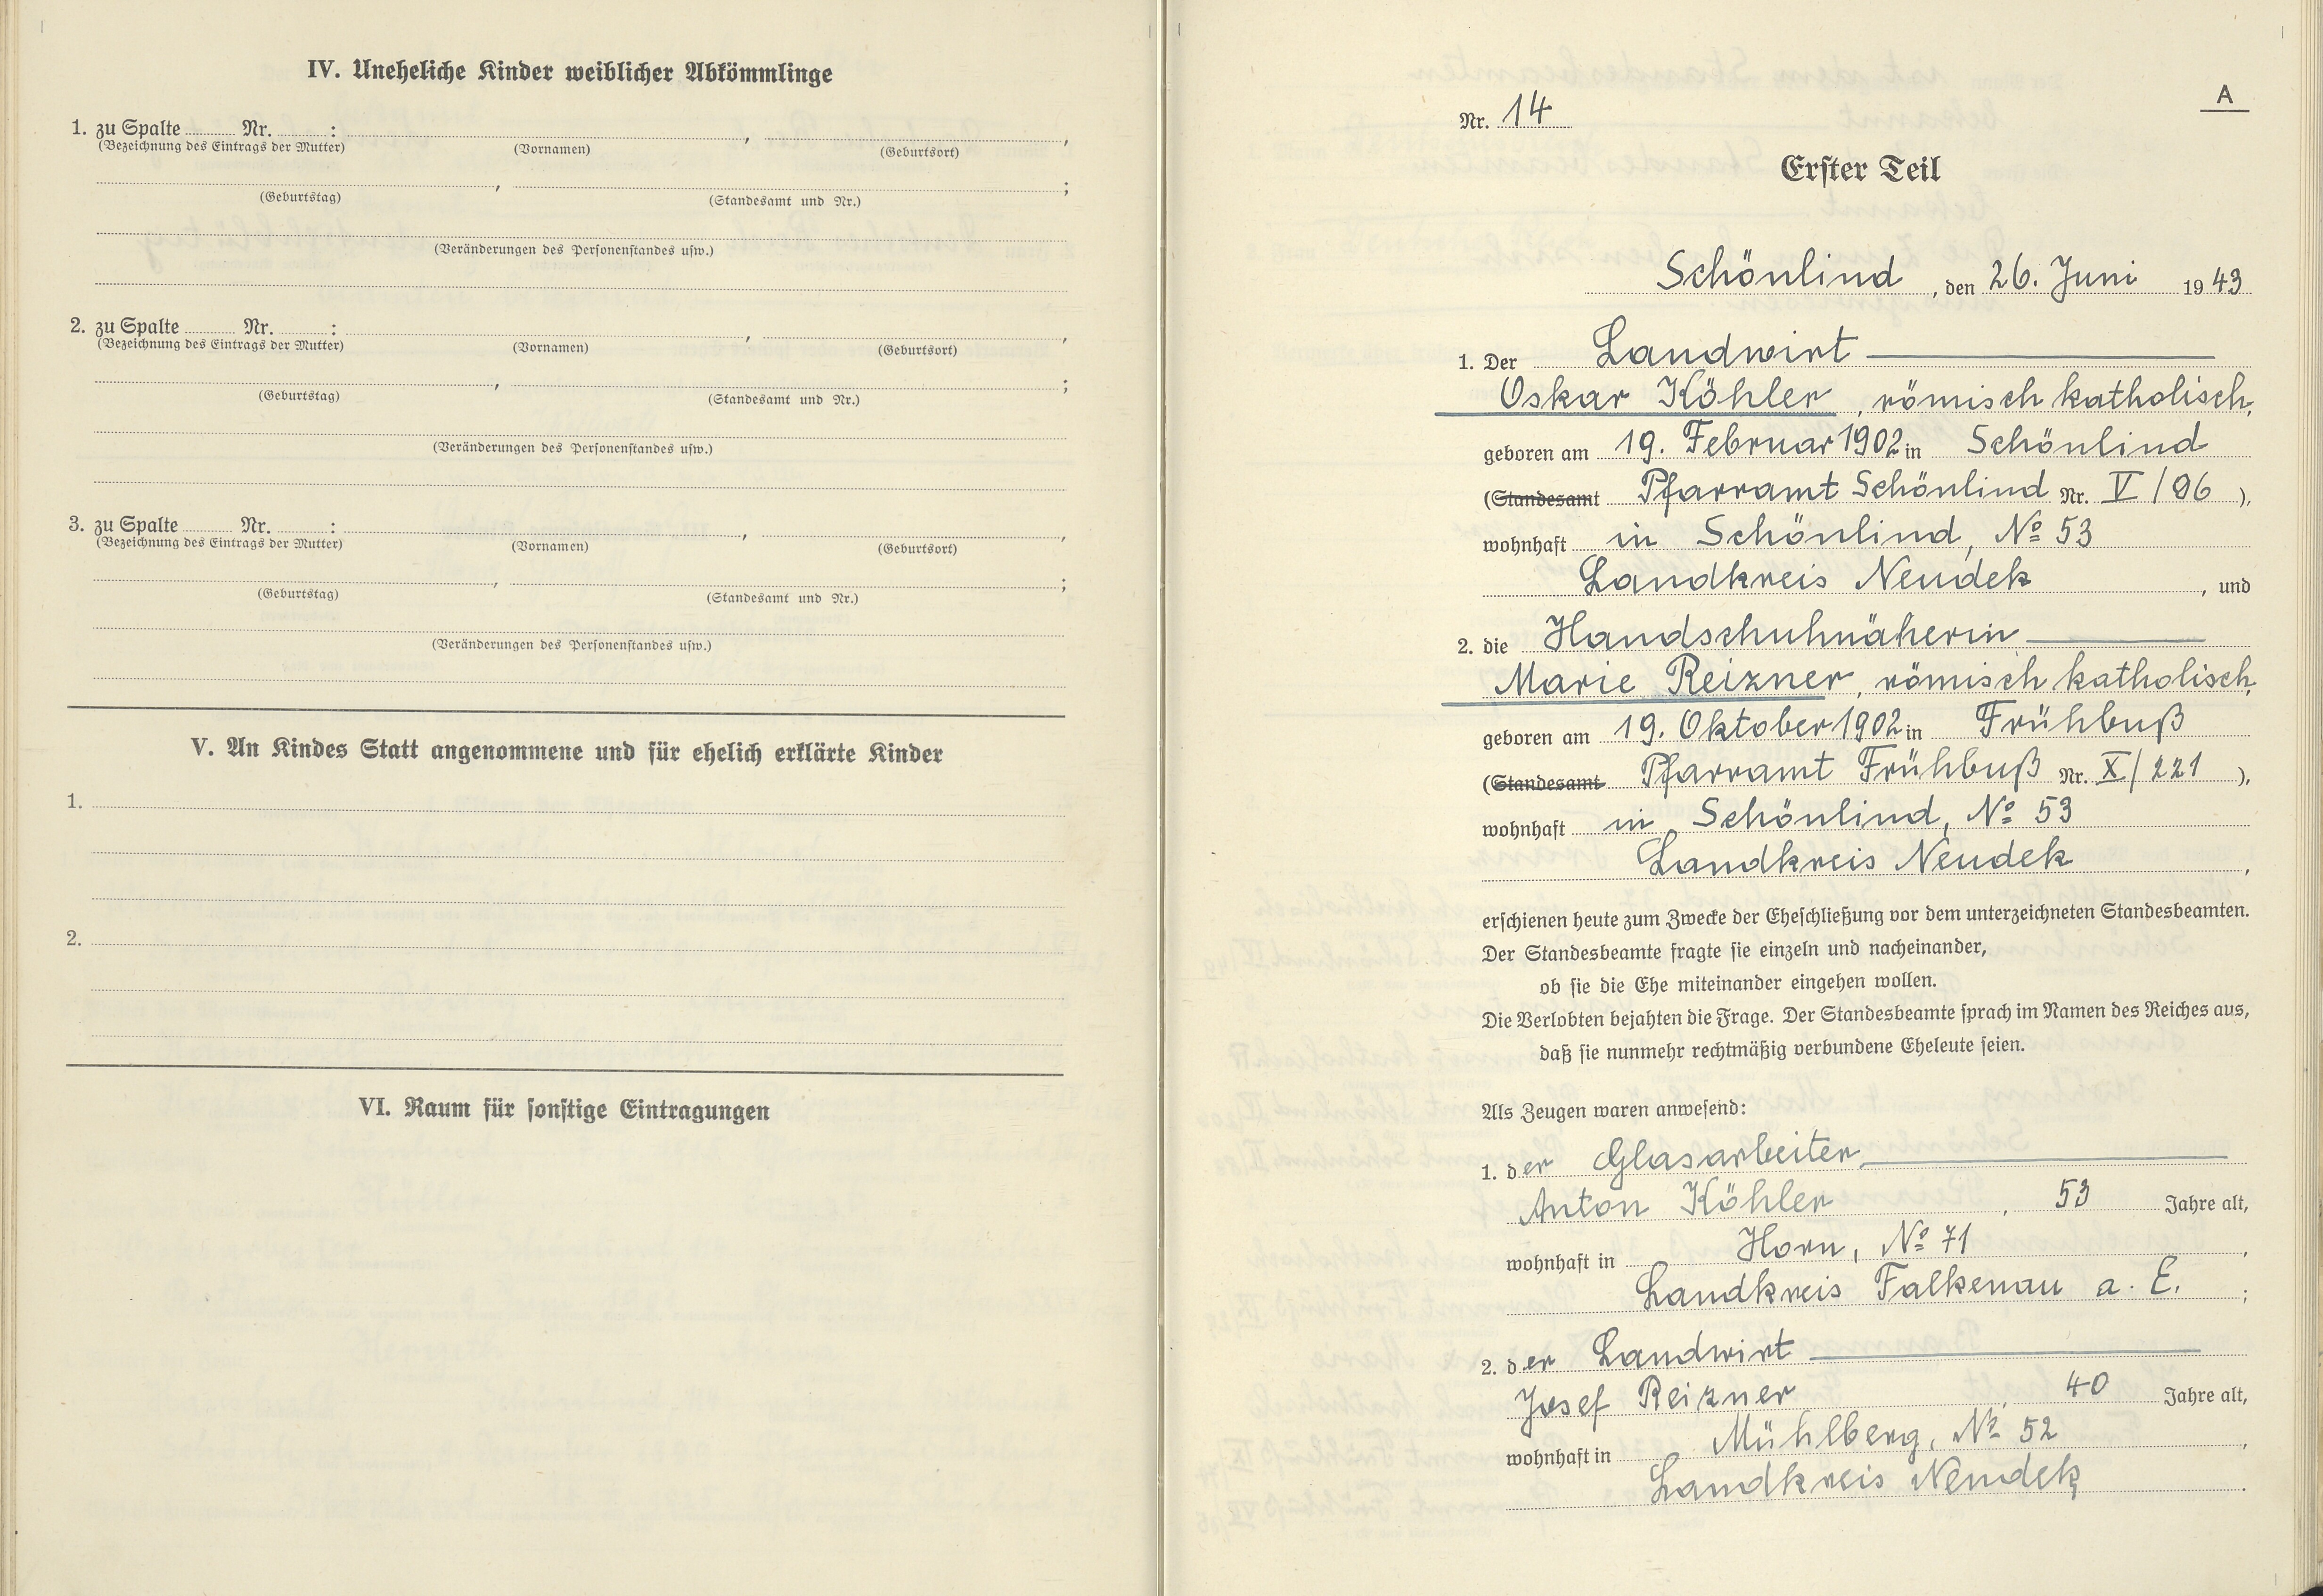 IV. Uneheliche Kinder weiblicher Abkömmlinge
1. zu Spalte Nr. : , ,
(Bezeichnung des Eintrags der Mutter) (Vornamen) (Geburtsort)
, ;
(Geburtstag) (Standesamt und Nr.)
(Veränderungen des Personenstandes usw.)
2. zu Spalte Nr. : , ,
(Bezeichnung des Eintrags der Mutter) (Vornamen) (Geburtsort)
, ;
(Geburtstag) (Standesamt und Nr.)
(Veränderungen des Personenstandes usw.)
3. zu Spalte Nr. : , ,
(Bezeichnung des Eintrags der Mutter) (Vornamen) (Geburtsort)
, ;
(Geburtstag) (Standesamt und Nr.)
(Veränderungen des Personenstandes usw.)
V. An Kindes Statt angenommene und für ehelich erklärte Kinder
1.
2.
VI. Raum für sonstige Eintragungen
A
Nr. 14
Erster Teil
Schönlind, den 26. Juni 1943
1. Der Landwirt
Oskar Köhler, römisch katholisch,
geboren am 19. Februar 1902 in Schönlind
(Standesamt Pfarramt Schönlind Nr. V/96),
wohnhaft in Schönlind, No 53
Landkreis Neudek, und
2. die Handschuhnäherin
Marie Reizner, römisch katholisch,
geboren am 19. Oktober 1902 in Frühbuß
(Standesamt Pfarramt Frühbuß Nr. X/221),
wohnhaft in Schönlind, No 53
Landkreis Neudek,
erschienen heute zum Zwecke der Eheschließung vor dem unterzeichneten Standesbeamten.
Der Standesbeamte fragte sie einzeln und nacheinander,
ob sie die Ehe miteinander eingehen wollen.
Die Verlobten bejahten die Frage. Der Standesbeamte sprach im Namen des Reiches aus,
daß sie nunmehr rechtmäßig verbundene Eheleute seien.
Als Zeugen waren anwesend:
1. der Glasarbeiter
Anton Köhler, 53 Jahre alt,
wohnhaft in Horn, No 71,
Landkreis Falkenau a. E.;
2. der Landwirt
Josef Reizner, 40 Jahre alt,
wohnhaft in Mühlberg, No 52,
Landkreis Neudek.